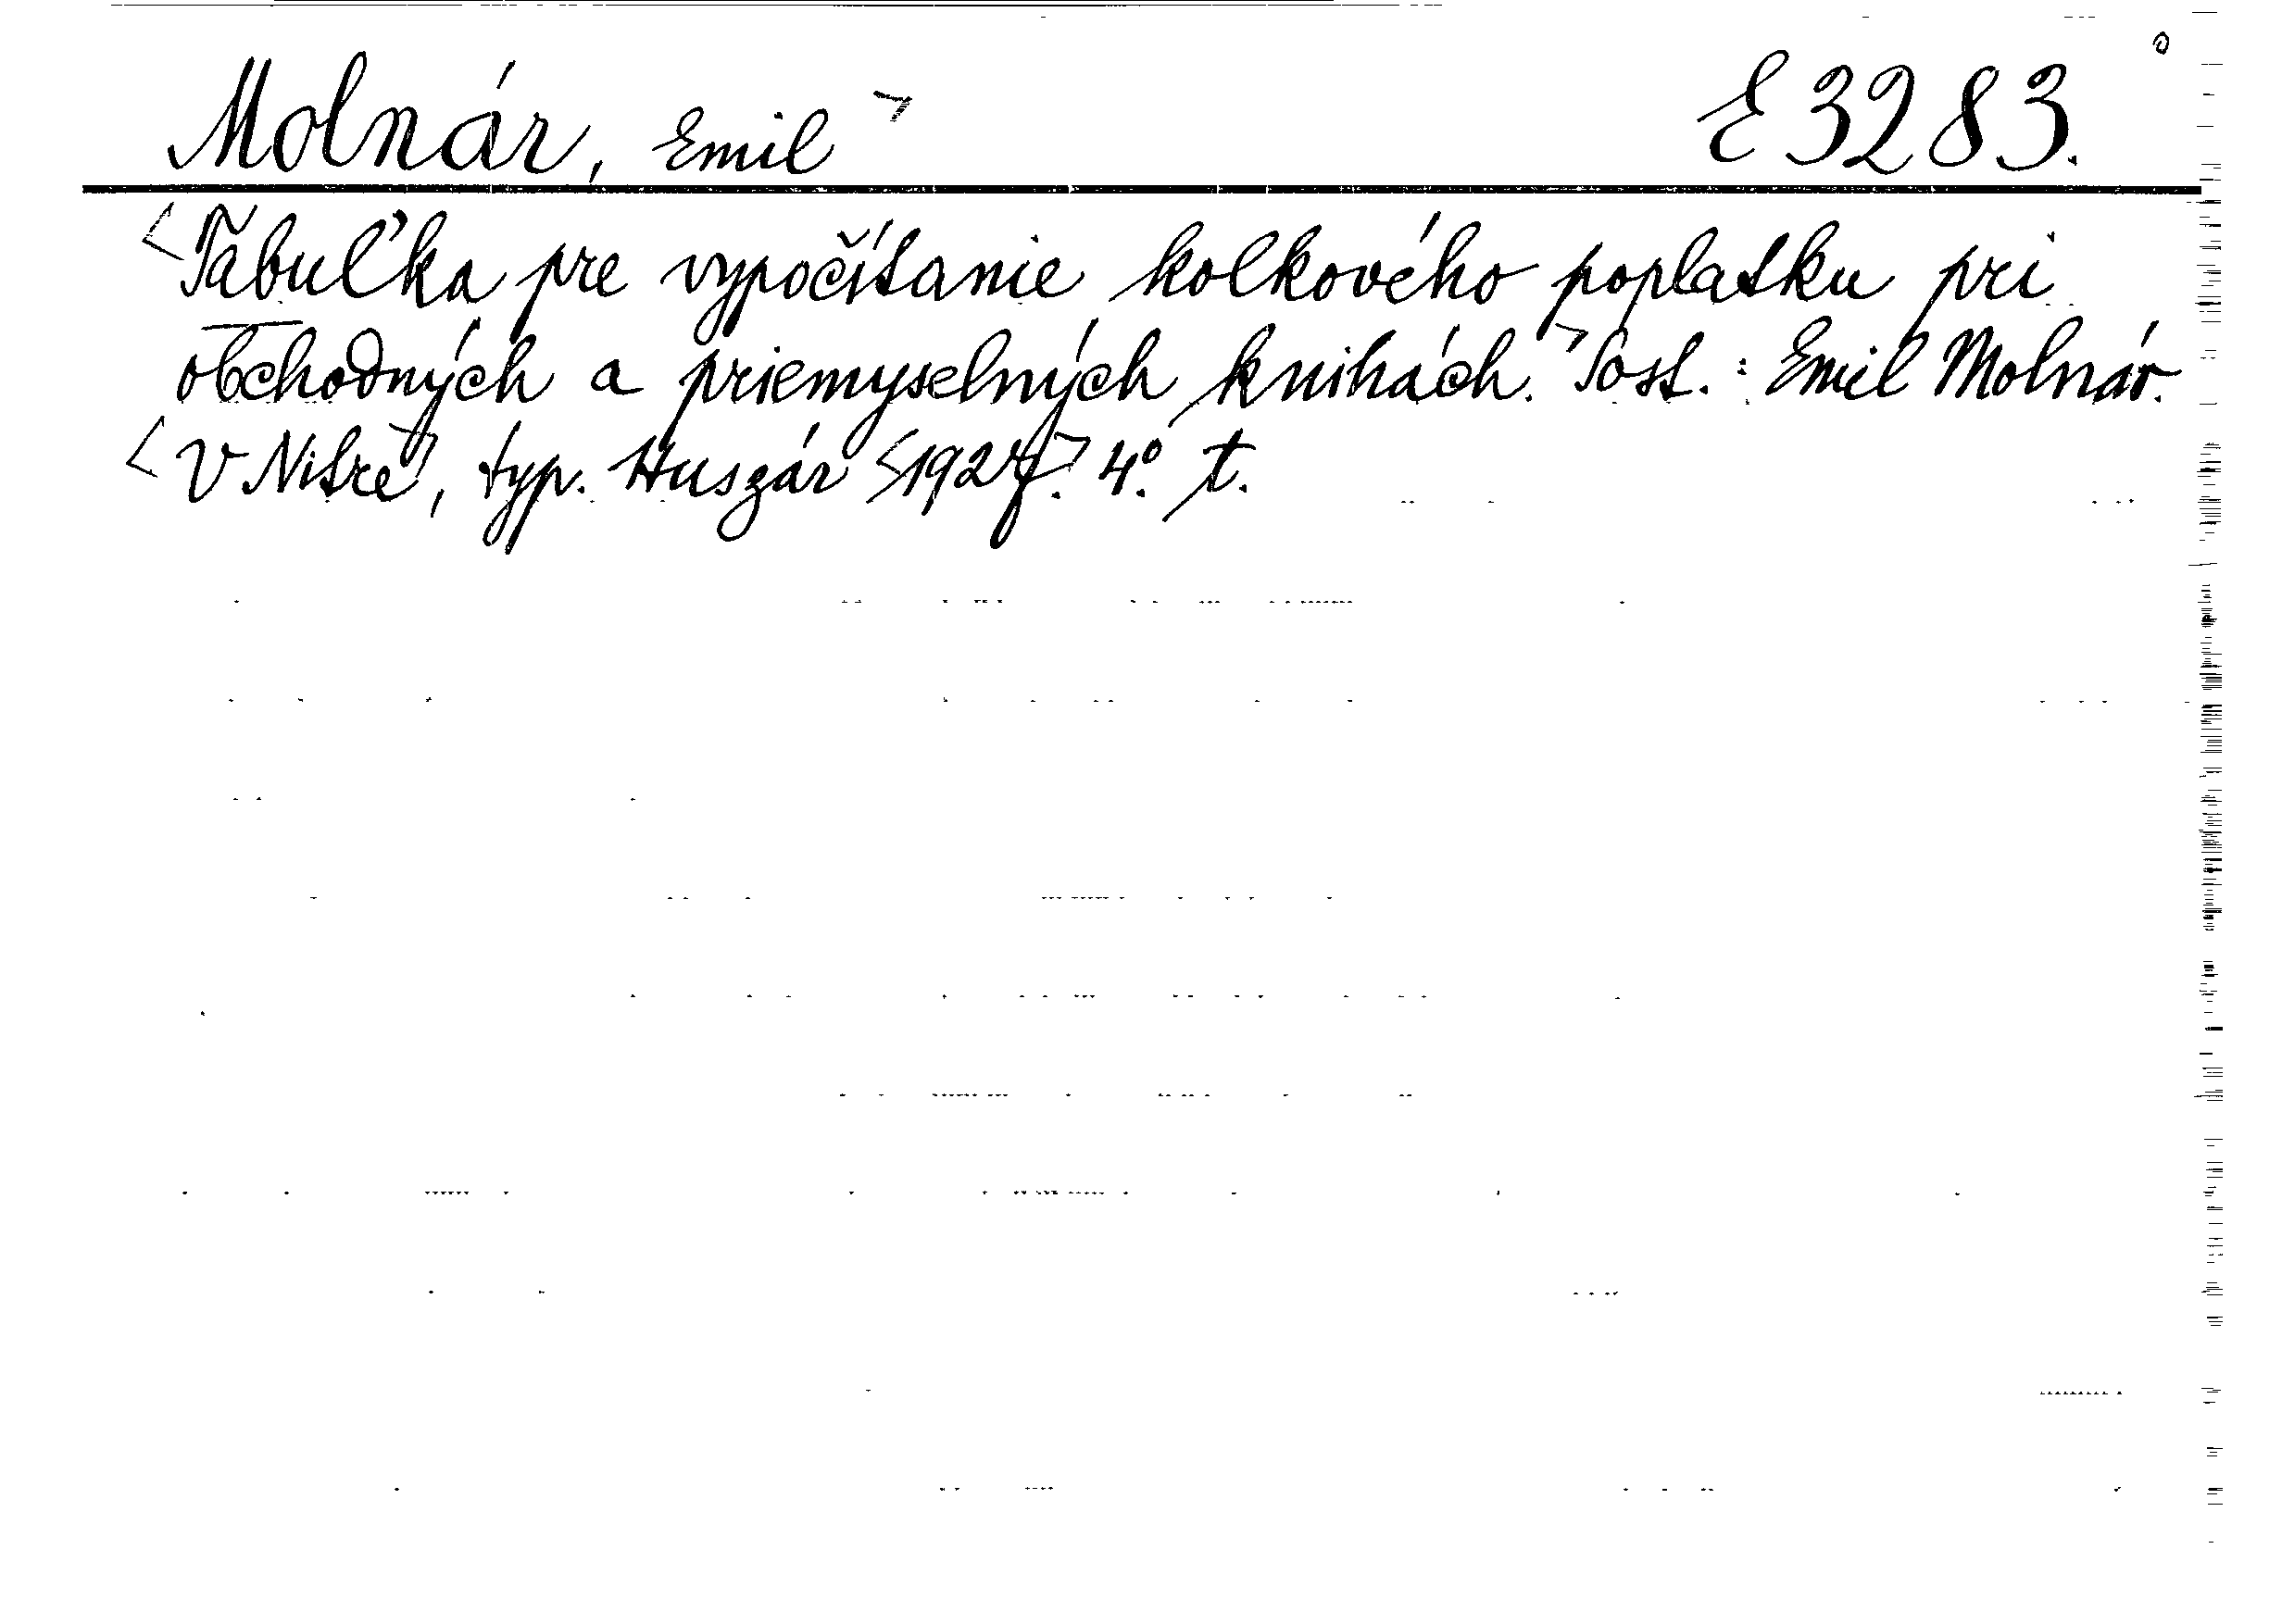 Molnár, Emil > E 3283.
<Tabuľka pre vypočítanie kolkového poplatku pri
obchodných a priemyselných knihách.> Sost.: Emil Molnár.
<V Nitre>, typ. Huszár <1927.> 4.° t.